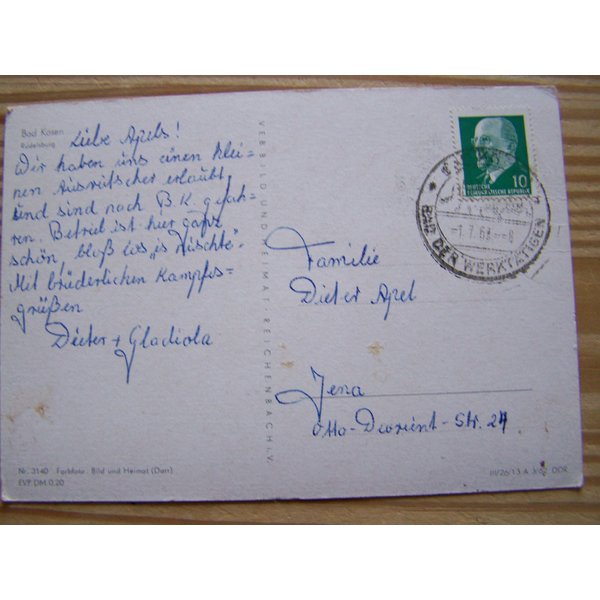 Bad Kösen
Rudelsburg
Liebe Apels!
Wir haben uns einen klei-
nen Ausrutscher erlaubt
und sind nach B.K. gefah-
ren. Betrieb ist hier ganz
schön, bloß los "is nischte".
Mit brüderlichen Kampfes-
grüßen
Dieter + Gladiola
Nr. 3140 Farbfoto: Bild und Heimat (Darr)
EVP DM 0,20
VEB BILD UND HEIMAT REICHENBACH i. V.
10
DEUTSCHE
DEMOKRATISCHE REPUBLIK
BAD DER WERKTÄTIGEN
Familie
Dieter Apel
Jena
Otto-Devrient-Str. 24
III/26/13 A DDR